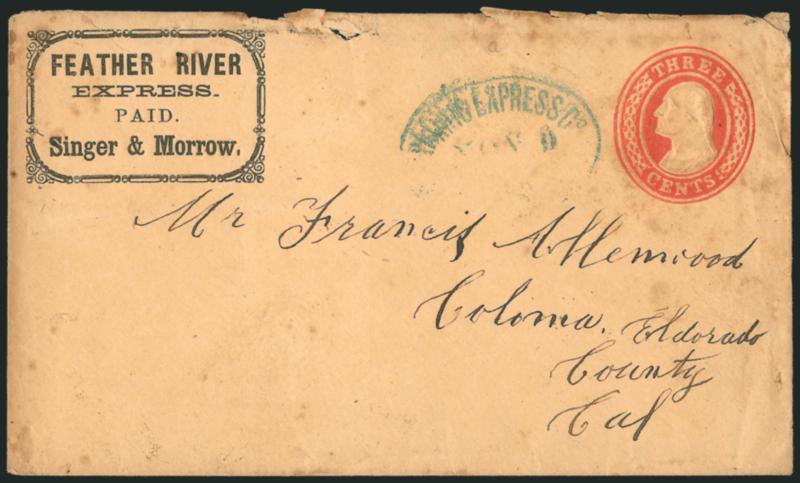 FEATHER RIVER
EXPRESS.
PAID.
Singer & Morrow.
PACIFIC EXPRESS Co
THREE
CENTS
Mr Francis Allenwood
Coloma. Eldorado
County
Cal